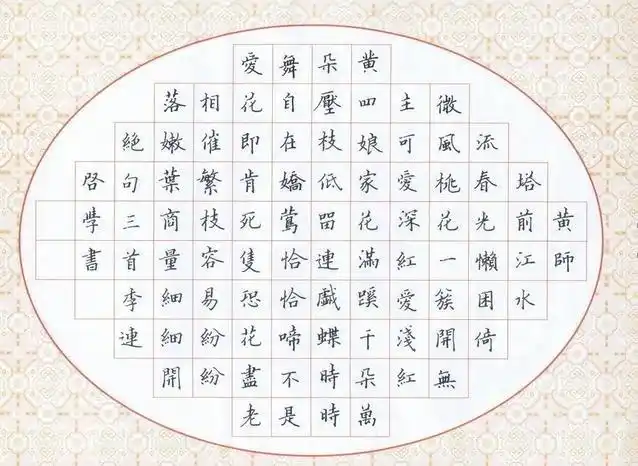 黄師
塔前江水
流春光懶困倚
微風桃花一簇開無
主可愛深紅愛淺紅
黄四娘家花滿蹊千朵萬
朵壓枝低留連戲蝶時時
舞自在嬌鶯恰恰啼不是
愛花即肯死隻恐花盡老
相催繁枝容易紛紛
落嫩葉商量細細開
絶句三首李連
啓學書